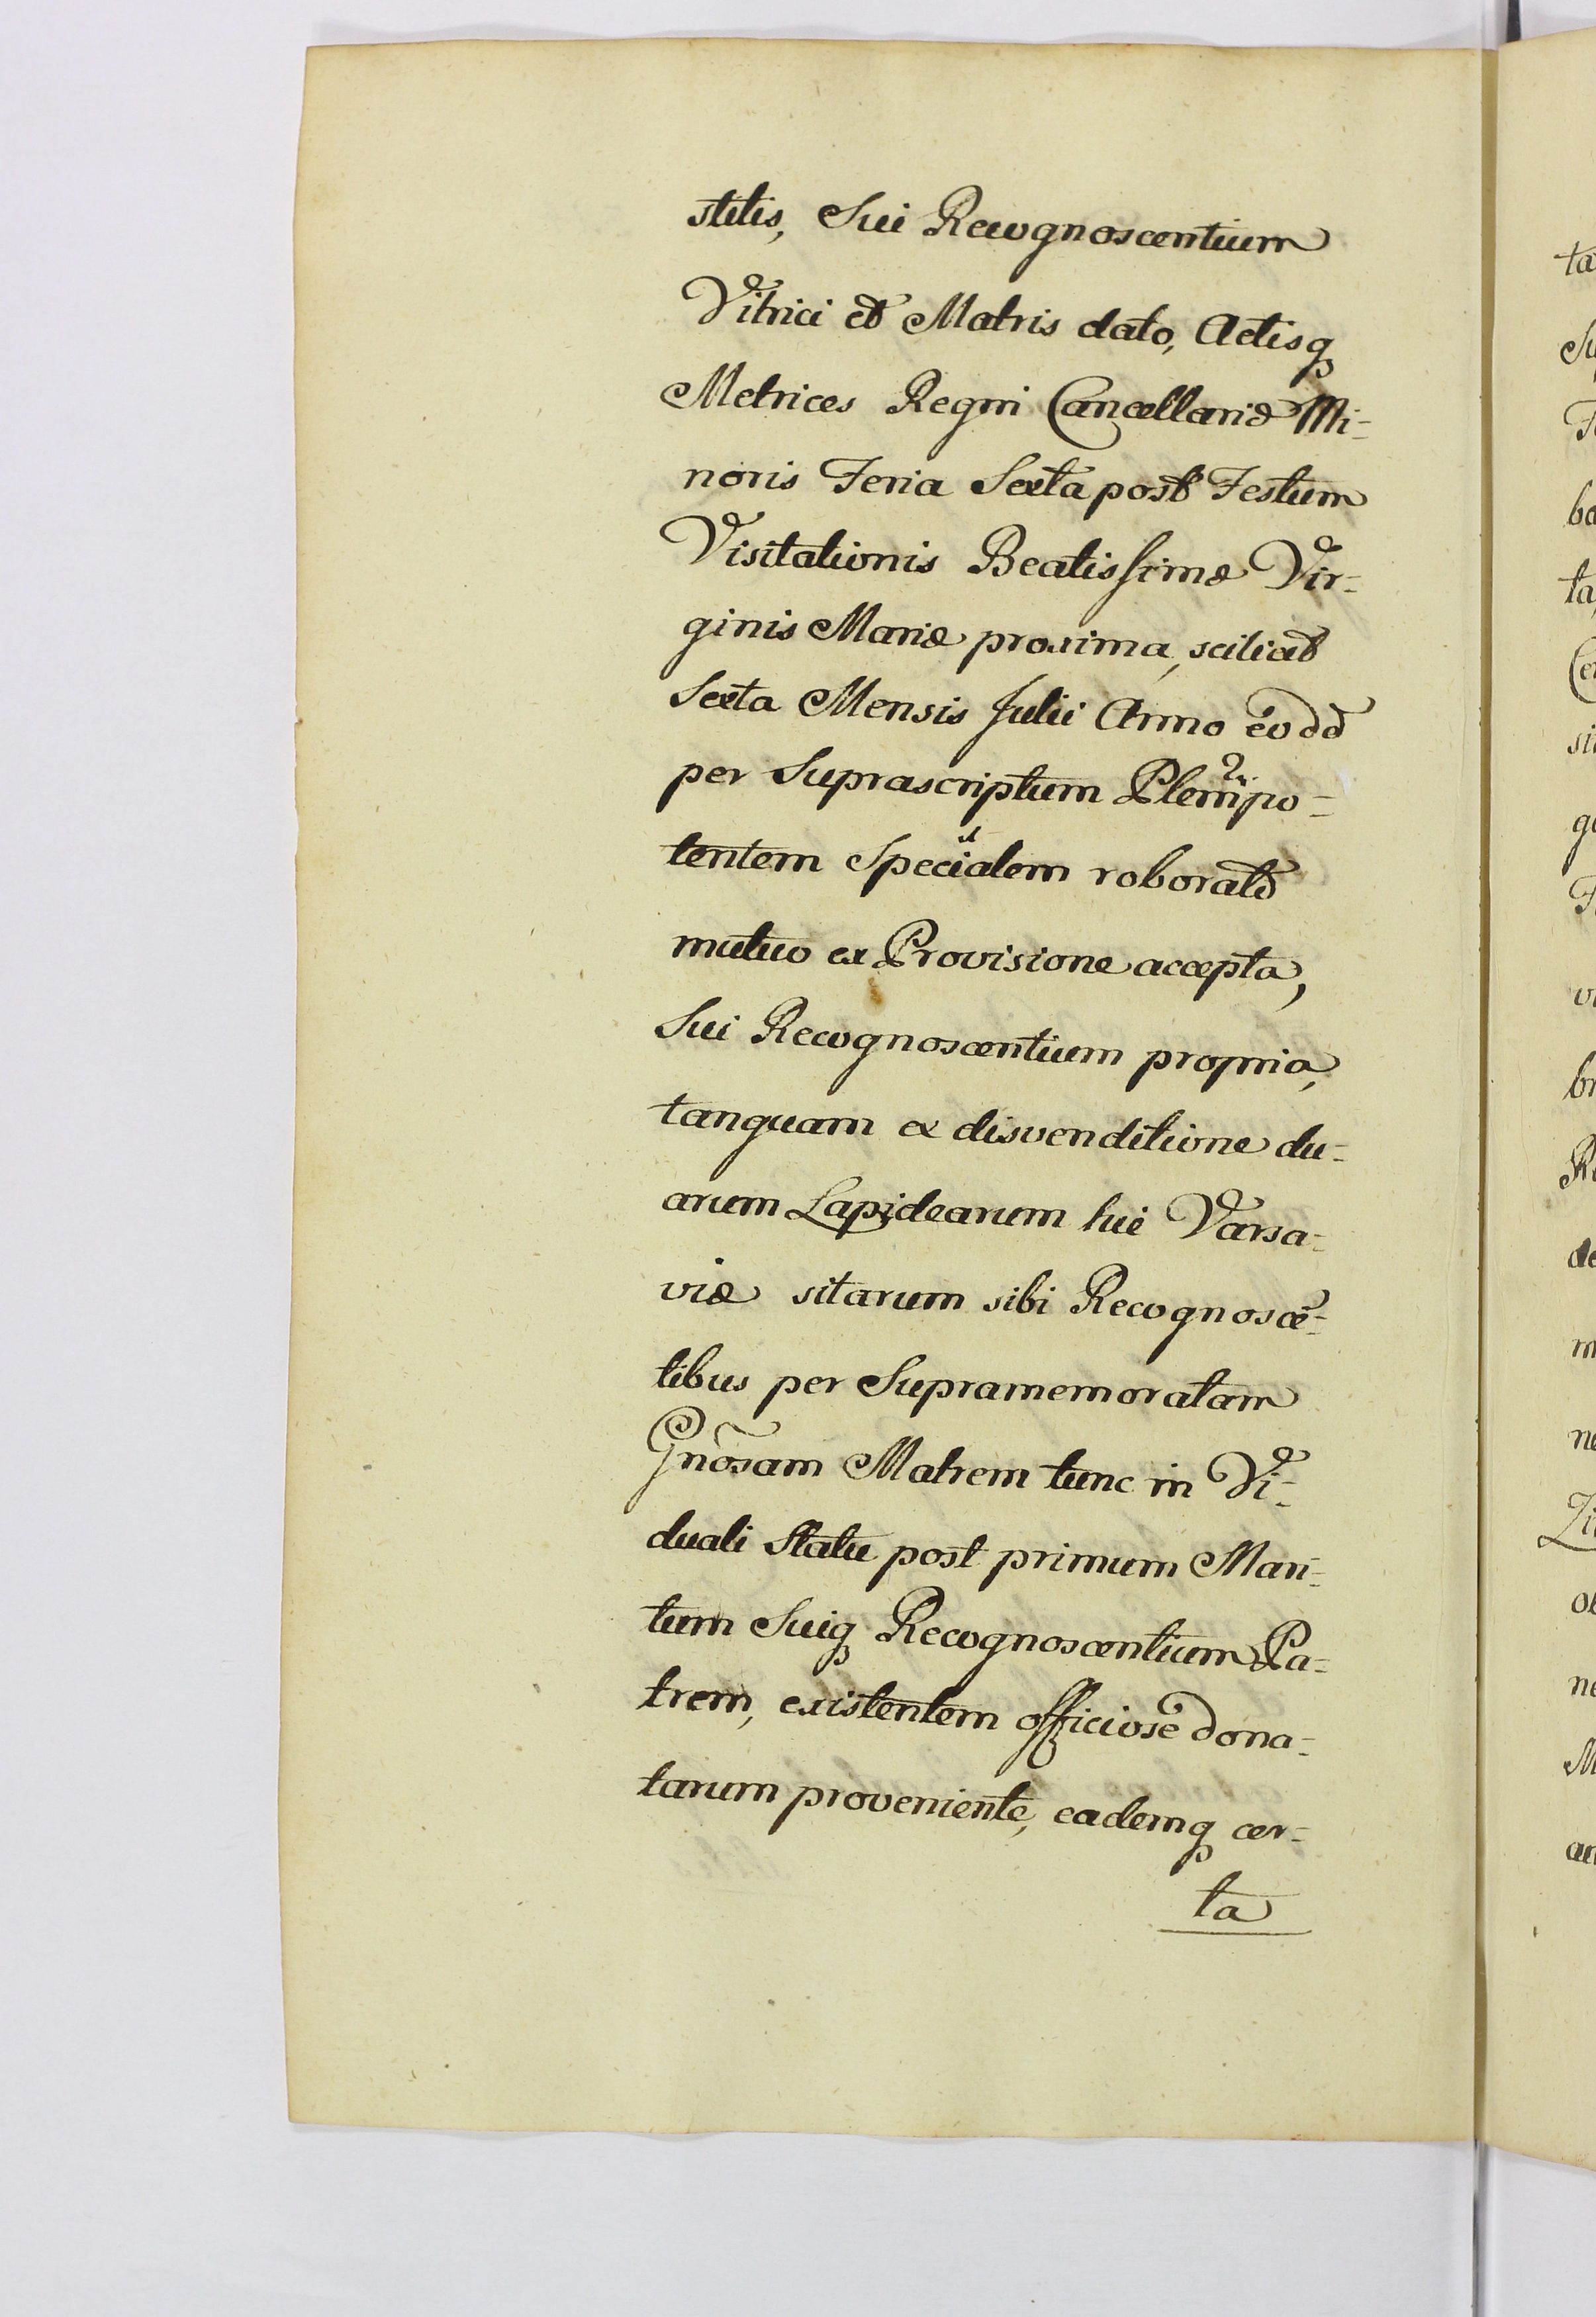 stitis, Sui Recognoscentium
Vitrici et Matris dato, Actisq
Metrices Regni Cancellariæ Mi=
noris Feria Sexta post Festum
Visitationis Beatissimæ Vir=
ginis Mariæ proxima, scilicet
Sexta Mensis Julii Anno eodd
per Suprascriptum Plenipo=
tentem Specialem roborato
mutuo ex Provisione accepta,
Sui Recognoscentium propria,
tanquam ex disvenditione du=
arum Lapidearum hic Varsa=
viæ sitarum sibi Recognoscē=
tibus per Supramemoratam
Gnõsam Matrem tunc in Vi=
duali Statu post primum Mari=
tum Suiq Recognoscentium Pa=
trem, existentem officiosè dona=
tarum proveniente, eademq cer=
ta